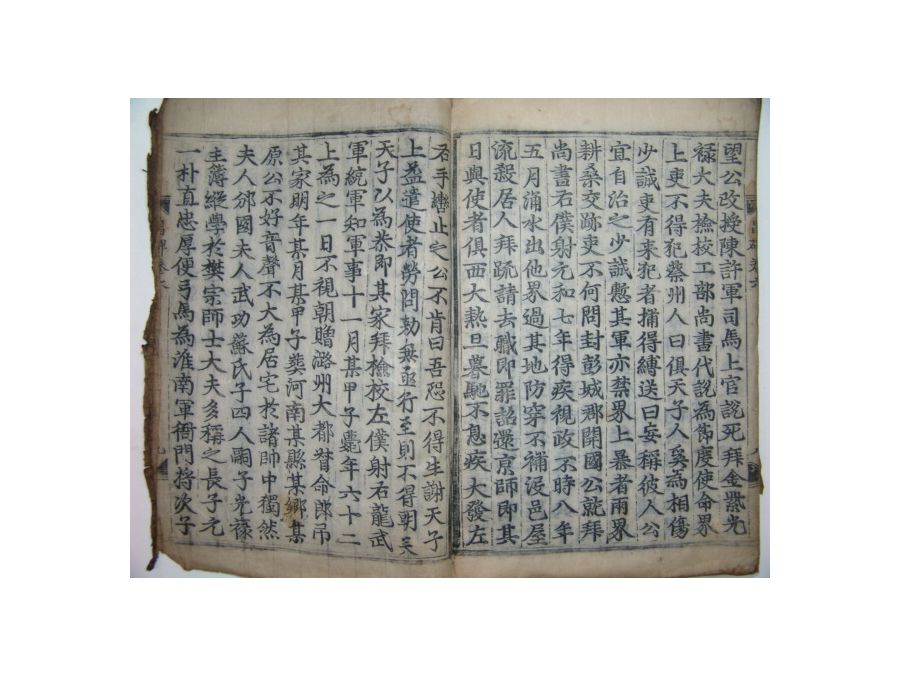 望公改授陳許軍司馬上官說死拜金紫光
祿大夫撿校工部尚書代說為節度使命界
上吏不得犯蔡州人曰俱天子人奚為相傷
少誠吏有来犯者捕得縛送曰妄稱彼人公
宜自治之少誠慙其軍亦禁界上暴者兩界
耕桑交跡吏不何問封彭城郡開國公就拜
尚書右僕射元和七年得疾視政不時八年
五月涌水出他界過其地防穿不補没邑屋
流殺居人拜疏請去職即罪詔還京師即其
日與使者俱西大熱旦暮馳不息疾大發左
右手轡止之公不肯曰吾恐不得生謝天子
上益遣使者勞問勑無亟行至則不得朝矣
天子以為恭即其家拜撿校左僕射右龍武
軍統軍知軍事十一月某甲子薨年六十二
上為之一日不視朝贈潞州大都督命郎吊
其家明年某月某甲子葬河南某縣某鄉某
原公不好音聲不大為居宅於諸帥中獨然
夫人邠國夫人武功蘇氏子四人嗣子光祿
主簿縱學於樊宗師士大夫多稱之長子元
一朴直忠厚便弓馬為淮南軍衙門將次子